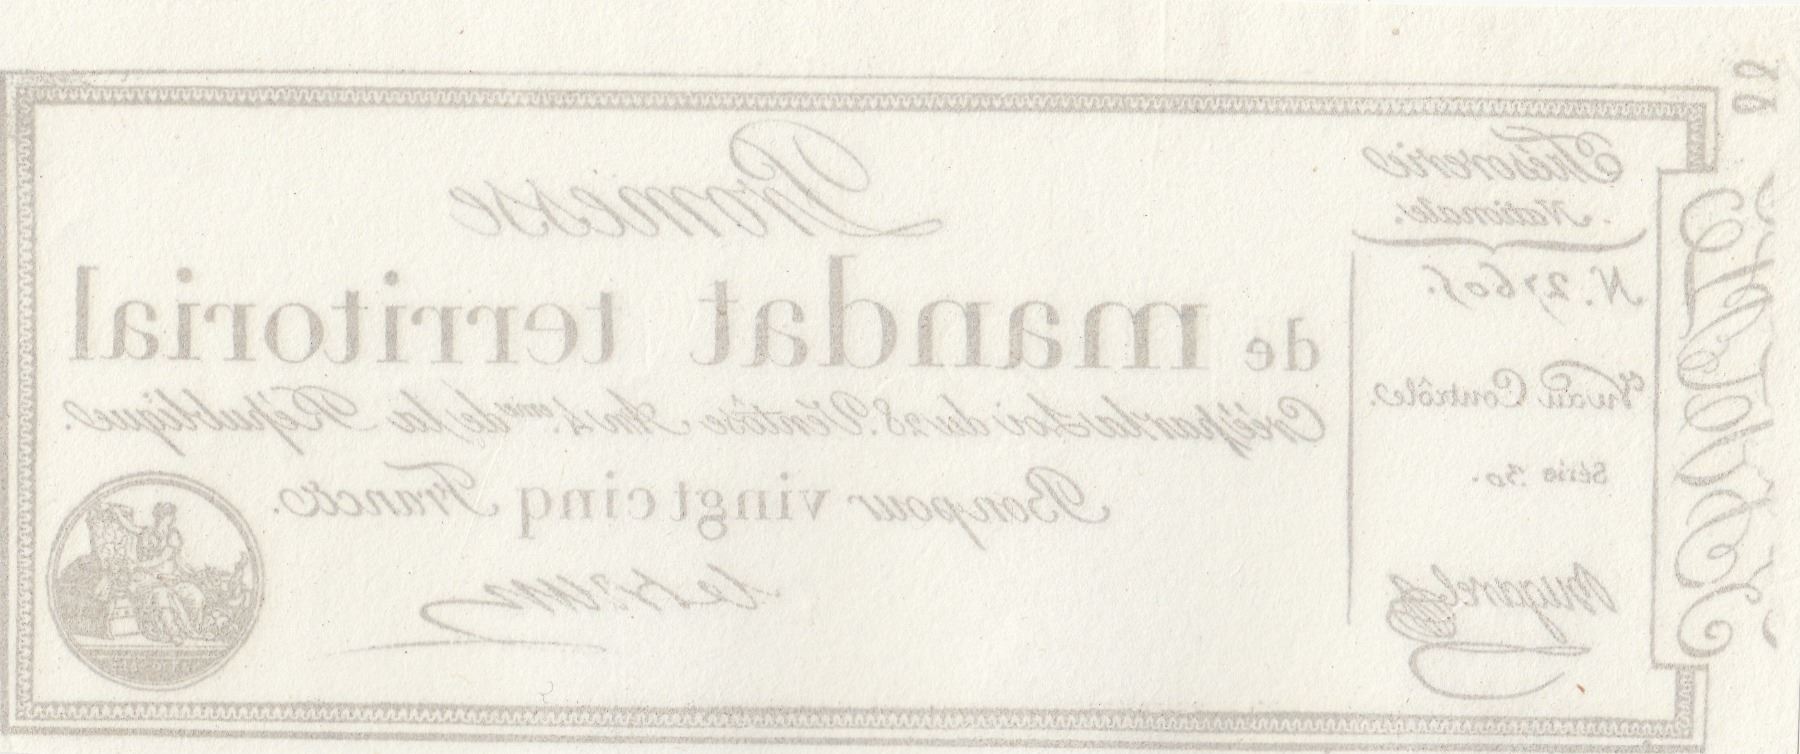 Promesse
de mandat territorial
Créé par la Loi du 28. Ventôse An 4.eme de la République.
Bon pour vingt cinq Francs.
Thesorerie
Nationale.
N. 27605.
Vu au Contrôle
Série 30.